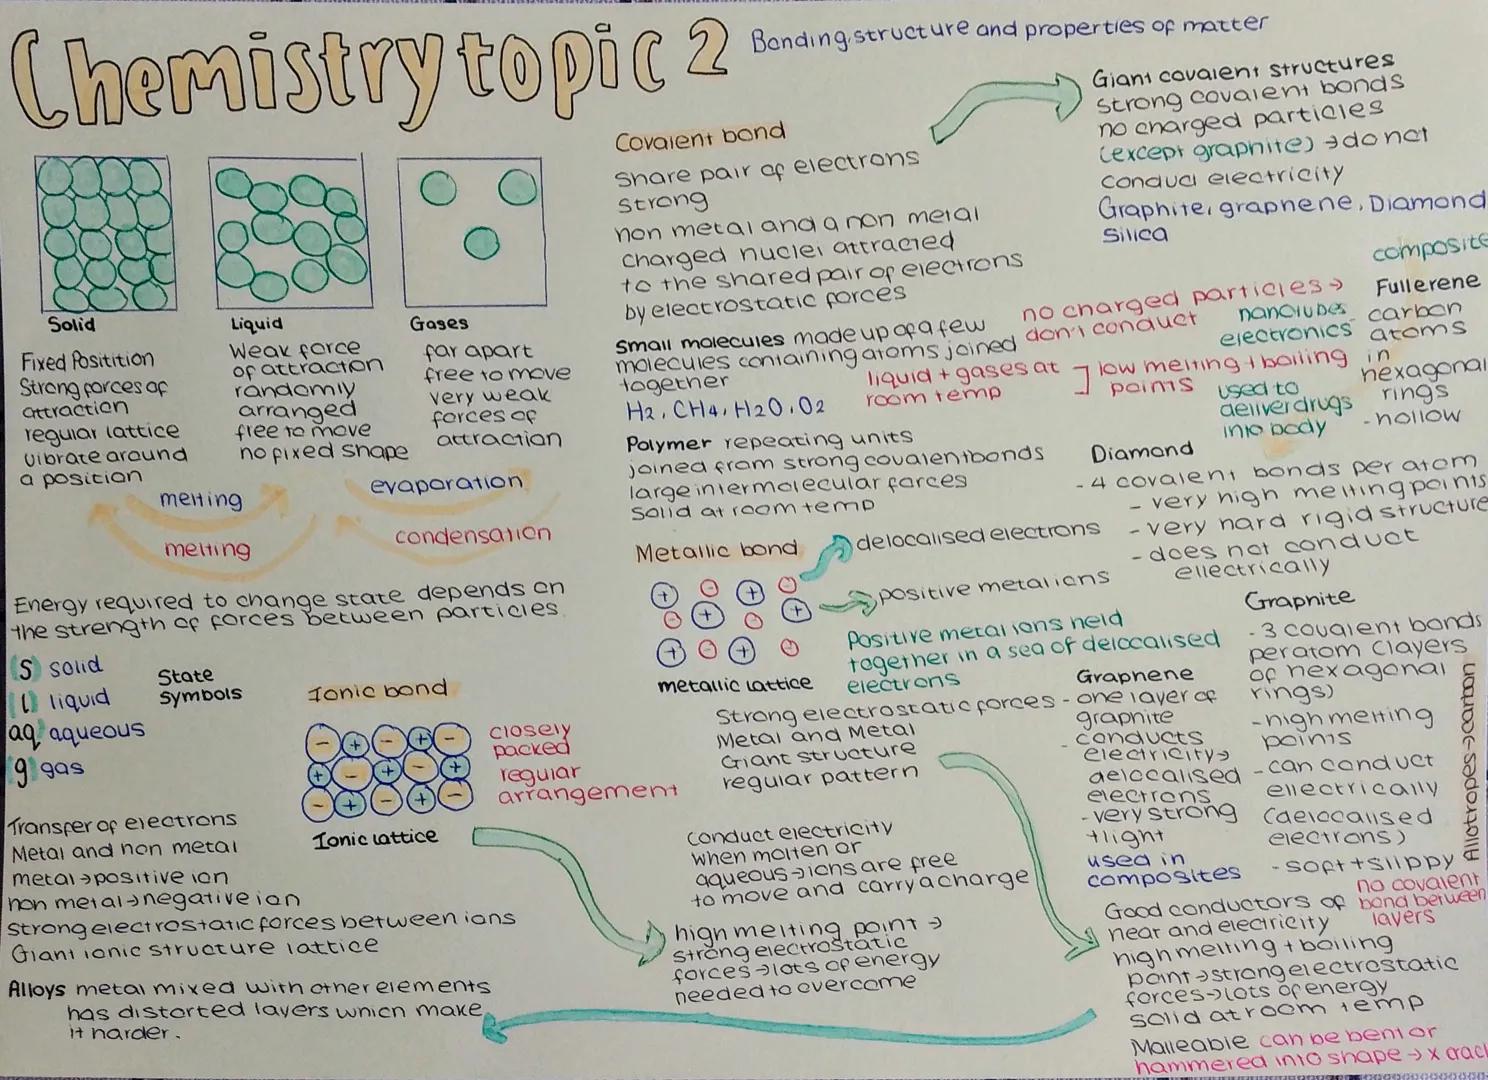 Chemistry topic 2
Bonding, structure and properties of matter
Solid
Fixed Positition
Strong forces of
attraction
regular lattice
vibrate around
a position
Liquid
Weak force
of attraction
randomly
arranged
free to move
no fixed shape
Gases
far apart
free to move
very weak
forces of
attraction
melting
melting
evaporation
condensation
Energy required to change state depends on
the strength of forces between particles.
(S) solid
(l) liquid
aq aqueous
(g) gas
State
Symbols
Ionic bond
- + - + -
+ - + - +
- + - + -
closely
packed
regular
arrangement
Ionic lattice
Transfer of electrons
Metal and non metal
metal → positive ion
non metal → negative ion
strong electrostatic forces between ions
Giant ionic structure lattice
Alloys metal mixed with other elements
has distorted layers which make
it harder.
Covalent bond
Share pair of electrons
Strong
non metal and a non metal
charged nuclei attracted
to the shared pair of electrons
by electrostatic forces
Small molecules made up of a few
molecules containing atoms joined
together
H2, CH4, H2O, O2
no charged particles →
don't conduct
liquid + gases at
room temp
low melting + boiling
points
Polymer repeating units
joined from strong covalent bonds
large intermolecular forces
Solid at room temp
Metallic bond
delocalised electrons
positive metal ions
+ - + -
- + - +
+ - + -
metallic lattice
Positive metal ions held
together in a sea of delocalised
electrons
Strong electrostatic forces
Metal and Metal
Giant structure
regular pattern
conduct electricity
when molten or
aqueous → ions are free
to move and carry a charge
high melting point →
strong electrostatic
forces → lots of energy
needed to overcome
Giant covalent structures
strong covalent bonds
no charged particles
(except graphite) → do not
conduct electricity
Graphite, graphene, Diamond
Silica
composite
Fullerene
carbon
atoms
in
hexagonal
rings
- hollow
nanotubes
electronics
used to
deliver drugs
into body
Diamond
- 4 covalent bonds per atom
- very high melting points
- very hard rigid structure
- does not conduct
ellectrically
Graphite
- 3 covalent bonds
per atom (layers
of hexagonal
rings)
- high melting
points
- can conduct
ellectrically
(delocalised
electrons)
- soft + slippy
no covalent
bond between
layers
Allotropes → carbon
Graphene
- one layer of
graphite
- conducts
electricity →
delocalised
electrons
- very strong
+ light
used in
composites
Good conductors of
heat and electricity
high melting + boiling
point → strong electrostatic
forces → lots of energy
solid at room temp
Malleable can be bent or
hammered into shape → x crack